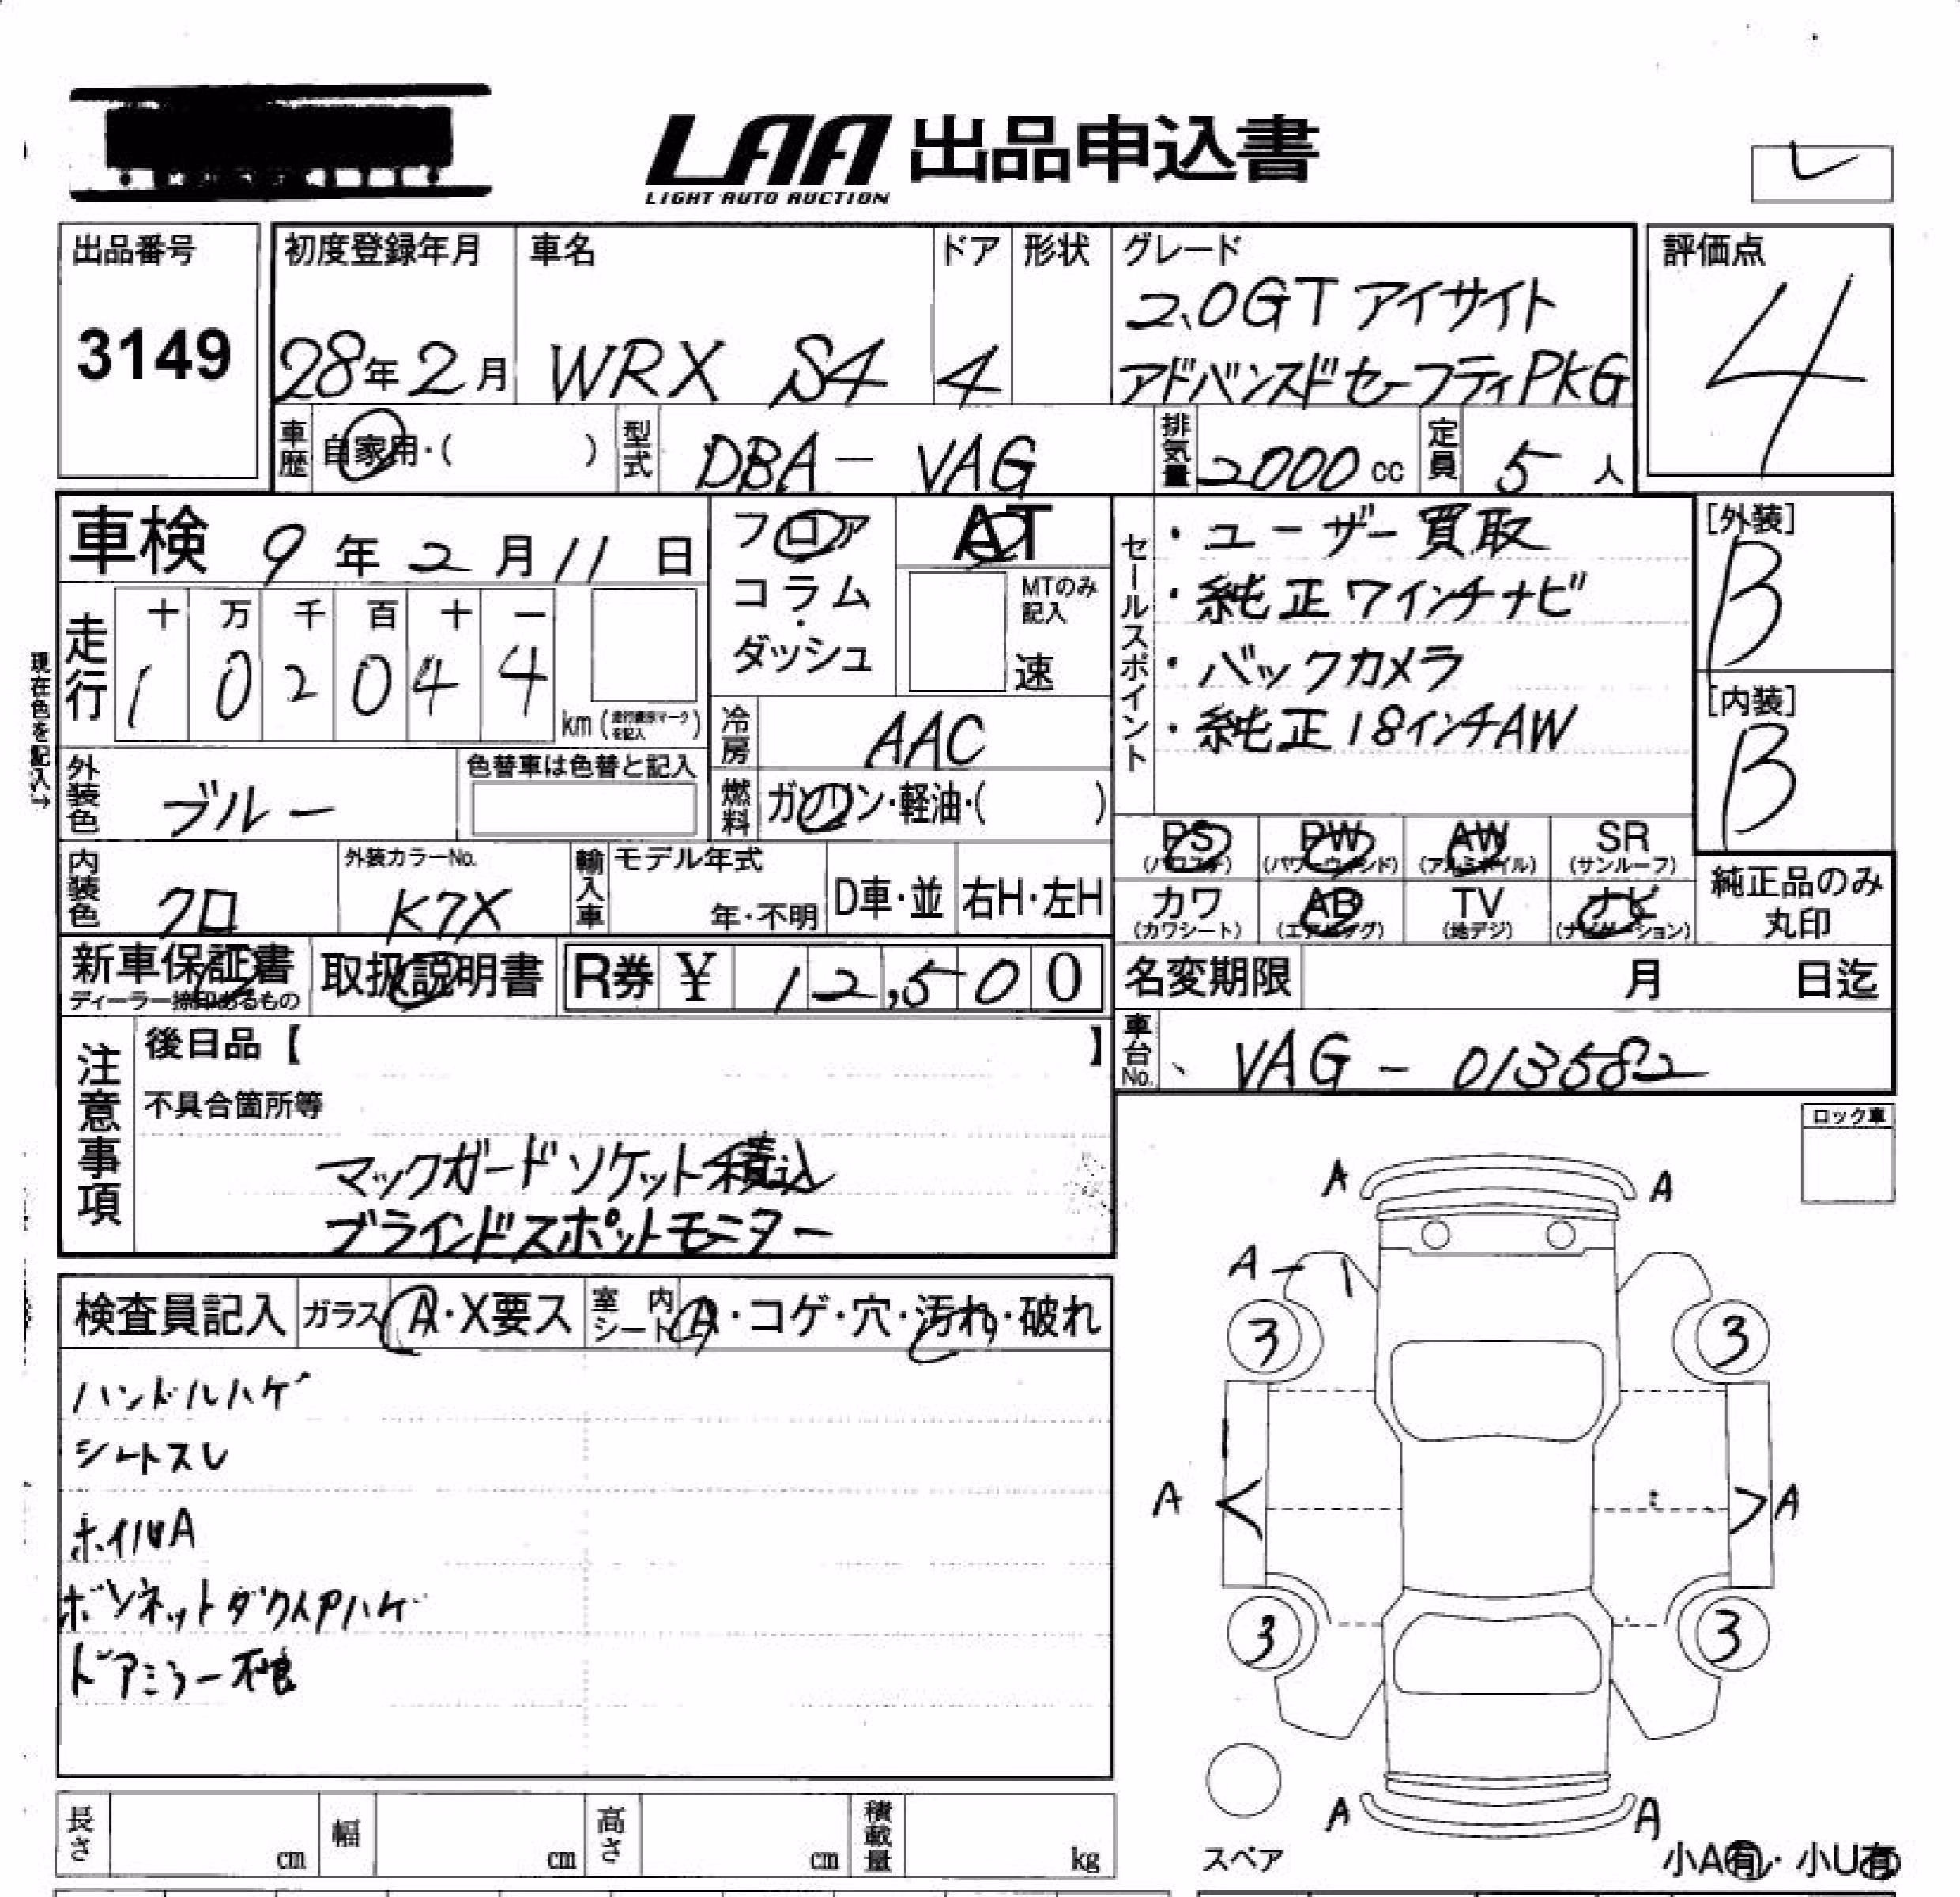 LAA 出品申込書
LIGHT AUTO AUCTION
レ
出品番号
3149
初度登録年月
28年2月
車名
WRX S4
ドア
4
形状
グレード
2.0GT アイサイト
アドバンスドセーフティPKG
評価点
4
車歴 自家用・( )
型式 DBA-VAG
排気量 2000cc
定員 5人
車検 9年2月11日
フロア
コラム
・
ダッシュ
AT
MTのみ
記入
速
セールスポイント
・ユーザー買取
・純正7インチナビ
・バックカメラ
・純正18インチAW
[外装]
B
[内装]
B
現在色を記入→
走行
十 万 千 百 十 一
1 0 2 0 4 4
km(走行表示マークを記入)
冷房 AAC
燃料 ガソリン・軽油・( )
外装色 ブルー
色替車は色替と記入
内装色 クロ
外装カラーNo.
K7X
輸入車
モデル年式
年・不明
D車・並
右H・左H
PS
(パワステ)
PW
(パワーウィンド)
AW
(アルミホイル)
SR
(サンルーフ)
カワ
(カワシート)
AB
(エアバッグ)
TV
(地デジ)
ナビ
(ナビゲーション)
純正品のみ
丸印
新車保証書
ディーラー捺印あるもの
取扱説明書
R券 ¥ 12,500
名変期限 月 日迄
車台No. VAG-013582
注意事項
後日品【 】
不具合箇所等
マックガードソケット積込
ブラインドスポットモニター
ロック車
検査員記入
ガラス A・X要ス
室内シート A・コゲ・穴・汚れ・破れ
ハンドルハゲ
シートスレ
ホイルA
ボンネットダクトPハゲ
ドアミラー不良
A A
A
3 3
A A
3 3
A A
スペア
小A有・小U有
長さ cm
幅 cm
高さ cm
積載量 kg